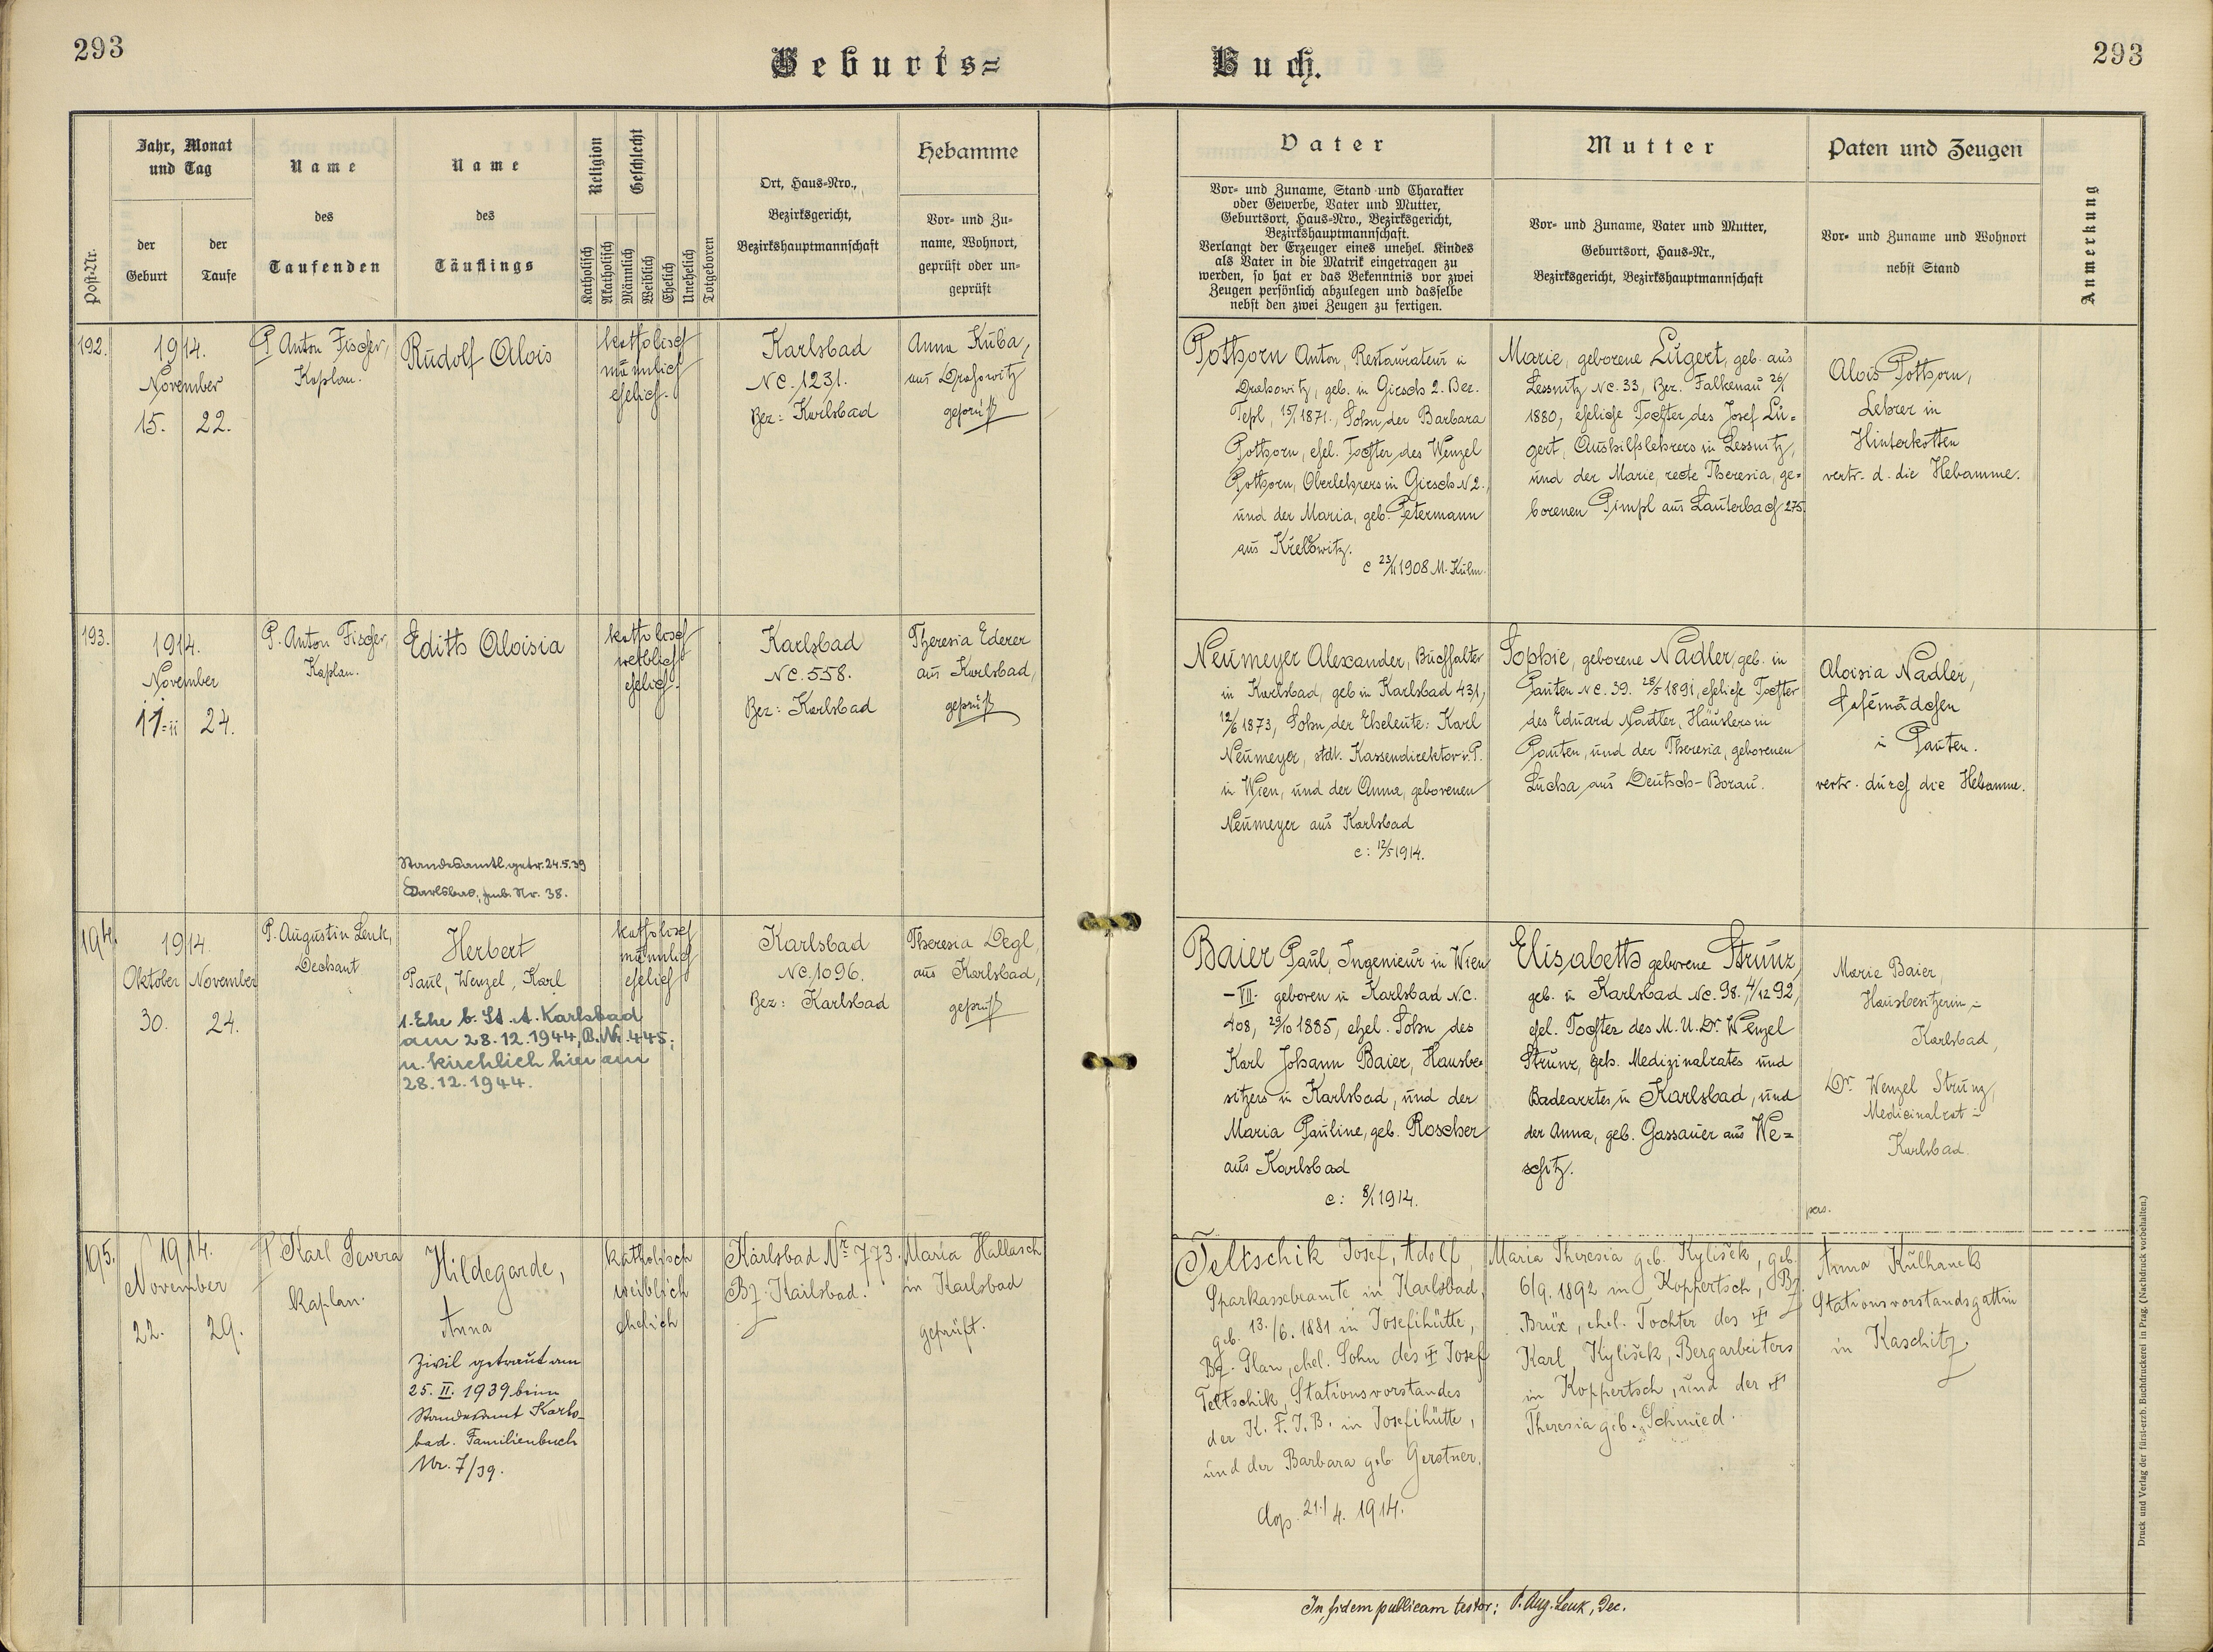 293
Geburts=
Buch.
293
Post-Nr.
Jahr, Monat
und Tag
der
Geburt
der
Taufe
Name
des
Taufenden
Name
des
Täuflings
Religion
Katholisch
Akatholisch
Geschlecht
Männlich
Weiblich
Ehelich
Unehelich
Totgeboren
Ort, Haus-Nro.,
Bezirksgericht,
Bezirkshauptmannschaft
Hebamme
Vor- und Zu-
name, Wohnort,
geprüft oder un-
geprüft
Vater
Vor- und Zuname, Stand und Charakter
oder Gewerbe, Vater und Mutter,
Geburtsort, Haus-Nro., Bezirksgericht,
Bezirkshauptmannschaft.
Verlangt der Erzeuger eines unehel. Kindes
als Vater in die Matrik eingetragen zu
werden, so hat er das Bekenntnis vor zwei
Zeugen persönlich abzulegen und dasselbe
nebst den zwei Zeugen zu fertigen.
Mutter
Vor- und Zuname, Vater und Mutter,
Geburtsort, Haus-Nr.,
Bezirksgericht, Bezirkshauptmannschaft
Paten und Zeugen
Vor- und Zuname und Wohnort
nebst Stand
Anmerkung
192.
1914.
November
15. 22.
P. Anton Fischer,
Kaplan.
Rudolf Alois
katholisch
männlich
ehelich.
Karlsbad
NC. 1231.
Bez: Karlsbad
Anna Kuba,
aus Drahowitz
geprüft
Pothorn Anton, Restaurateur in
Drahowitz, geb. in Girsch 2. Bez.
Tepl, 15/1 1871., Sohn der Barbara
Pothorn, ehel. Tochter des Wenzel
Pothorn, Oberlehrers in Girsch N 2.,
und der Maria, geb. Petermann
aus
c 23/11 1908 M. Kulm.
Marie, geborene Lugert, geb. aus
Lessnitz NC. 33, Bez. Falkenau 26/1
1880, eheliche Tochter des Josef Lu=
gert, Aushilfslehrers in Lessnitz,
und der Marie, recte Theresia, ge=
borenen Pimpl aus Lauterbach 275.
Alois Pothorn,
Lehrer in
Hinterkotten
vertr. d. die Hebamme.
193.
1914.
November
11. 24.
P. Anton Fischer,
Kaplan.
Edith Aloisia
Standesamtl. getr. 24.5.39
Karlsbad, Nr. 38.
katholisch
weiblich
ehelich.
Karlsbad
NC. 558.
Bez: Karlsbad
Theresia Ederer
aus Karlsbad,
geprüft
Neumeyer Alexander, Buchhalter
in Karlsbad, geb in Karlsbad 431,
12/6 1873, Sohn der Eheleute: Karl
Neumeyer, stdt. Kassendirektor i. P.
in Wien, und der Anna, geborenen
Neumeyer aus Karlsbad
c: 12/5 1914.
Sophie, geborene Nadler, geb. in
Pauten NC. 39. 28/5 1891, eheliche Tochter
des Eduard Nadler, Häuslers in
Pauten, und der Theresia, geborenen
Lucha aus Deutsch-Borau.
Aloisia Nadler,
Cafémädchen
in Pauten.
vertr. durch die Hebamme.
194.
1914
Oktober November
30. 24.
P. Augustin Lenk,
Dechant
Herbert
Paul, Wenzel, Karl
1. Ehe b. St. A. Karlsbad
am 28.12.1944, B. Nr. 445;
u. kirchlich hier am
28.12.1944.
katholisch
männlich
ehelich
Karlsbad
NC. 1096.
Bez: Karlsbad
Theresia Degl,
aus Karlsbad,
geprüft
Baier Paul, Ingenieur in Wien
-VII. geboren in Karlsbad NC.
408, 29/10 1885, ehel. Sohn des
Karl Johann Baier, Hausbe=
sitzers in Karlsbad, und der
Maria Pauline, geb. Roscher
aus Karlsbad
c: 8/1 1914.
Elisabeth geborene Strunz,
geb. in Karlsbad NC. 98. 4/12 92,
ehel. Tochter des M. U. Dr. Wenzel
Strunz, geh. Medizinalrates und
Badearztes in Karlsbad, und
der Anna, geb. Gassauer aus We=
schitz.
Marie Baier,
Hausbesitzerin in
Karlsbad,
Dr. Wenzel Strunz,
Medicinalrat in
Karlsbad.
pers.
195.
1914.
November
22. 29.
P Karl Severa
Kaplan.
Hildegarde,
Anna
Zivil getraut am
25. II. 1939 beim
Standesamt Karls-
bad. Familienbuch
Nr. 7/39.
katholisch
weiblich
ehelich
Karlsbad Nr. 773.
Bz. Karlsbad.
Maria Hallasch
in Karlsbad
geprüft.
Teltschik Josef, Adolf,
Sparkassebeamte in Karlsbad,
geb. 13./6. 1881 in Josefihütte,
Bz. Plan, ehel. Sohn des † Josef
Teltschik, Stationsvorstandes
der K. F. J. B. in Josefihütte,
und der Barbara geb. Gerstner.
Cop. 21./4. 1914.
Maria Theresia geb. Kylišek, geb.
6/9. 1892 in Koppertsch, Bz.
Brüx, ehel. Tochter des †
Karl Kylišek, Bergarbeiters
in Koppertsch, und der †
Theresia geb. Schmied.
Anna Kulhanek
Stationsvorstandsgattin
in Kaschitz.
In fidem publicam testor: P. Aug. Lenk, Dec.
Druck und Verlag der fürst-erzb. Buchdruckerei in Prag. (Nachdruck vorbehalten.)